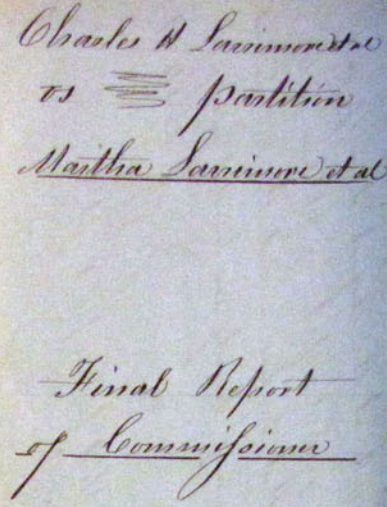 Charles H Larrimore et al
vs partition
Martha Larrimore et al
Final Report
of Commissioner